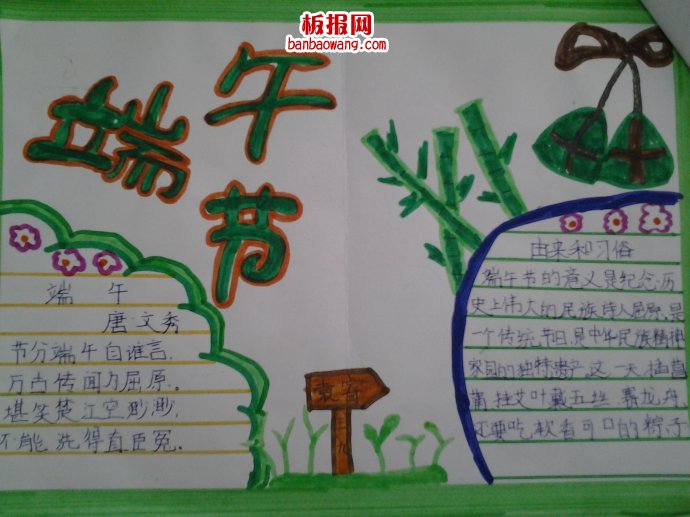 板报网
banbaowang.com
端午节
端 午
唐·文秀
节分端午自谁言,
万古传闻为屈原。
堪笑楚江空渺渺,
不能洗得直臣冤。
由来和习俗
端午节的意义是纪念历
史上伟大的民族诗人屈原,是
一个传统节日,是中华民族精神
家园的独特遗产,这一天插菖
蒲,挂艾叶,戴五丝,赛龙舟,
还要吃软香可口的粽子